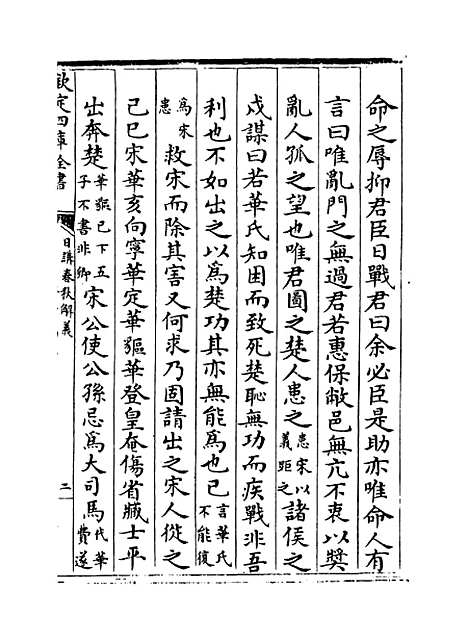 命之辱抑君臣日戰君曰余必臣是助亦唯命人有
言曰唯亂門之無過君若惠保敝邑無亢不衷以奬
亂人孤之望也唯君圖之楚人患之患宋以義距之諸侯之
戍謀曰若華氏知困而致死楚恥無功而疾戰非吾
利也不如出之以爲楚功其亦無能爲也已言華氏不能復
爲宋患救宋而除其害又何求乃固請出之宋人從之
己巳宋華亥向寧華定華貙華登皇奄傷省臧士平
出奔楚華貙已下五子不書非卿宋公使公孫忌爲大司馬代華費遂
欽定四庫全書
日講春秋解義
二